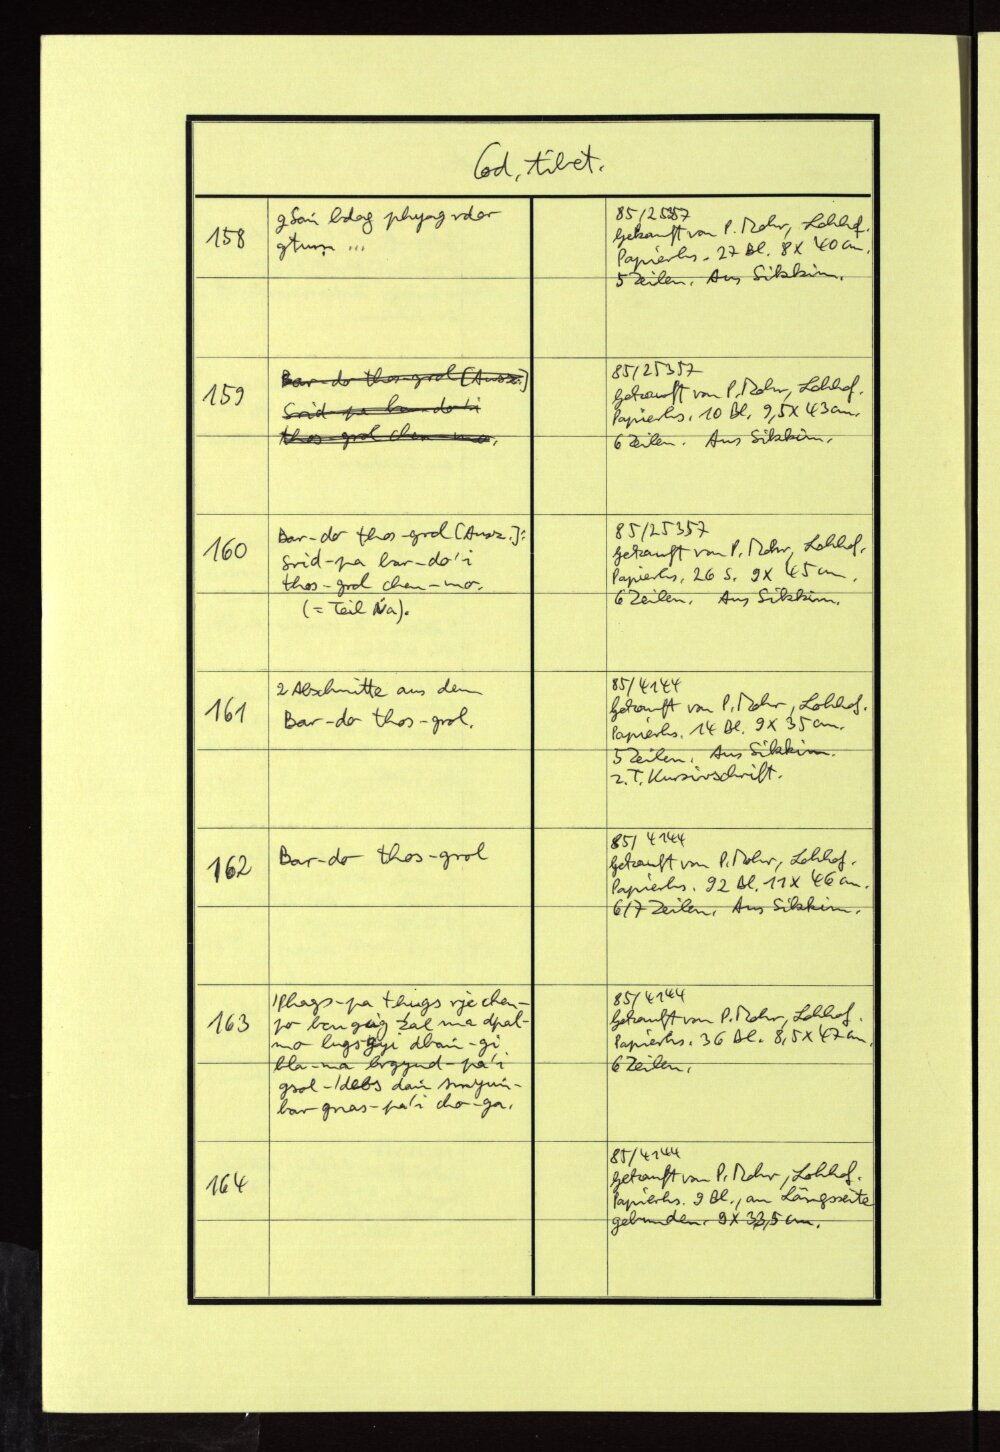 Cod. tibet.
158
gSaṅ bdag phyag rdor
gtum ...
85/25357
Gekauft von P. Mohr, Lohhof.
Papierhs. 27 Bl. 8 x 40 cm.
5 Zeilen. Aus Sikkim.
159
Bar-do thos-grol [Ausz.]
Srid-pa bar-do'i
thos-grol chen-mo.
85/25357
Gekauft von P. Mohr, Lohhof.
Papierhs. 10 Bl. 9,5 x 43 cm.
6 Zeilen. Aus Sikkim.
160
Bar-do thos-grol [Ausz.]:
Srid-pa bar-do'i
thos-grol chen-mo.
(= Teil Ṅa).
85/25357
Gekauft von P. Mohr, Lohhof.
Papierhs. 26 S. 9 x 45 cm.
6 Zeilen. Aus Sikkim.
161
2 Abschnitte aus dem
Bar-do thos-grol.
85/4144
Gekauft von P. Mohr, Lohhof.
Papierhs. 14 Bl. 9 x 35 cm.
5 Zeilen. Aus Sikkim.
z.T. Kursivschrift.
162
Bar-do thos-grol
85/4144
Gekauft von P. Mohr, Lohhof.
Papierhs. 92 Bl. 11 x 46 cm.
6/7 Zeilen. Aus Sikkim.
163
'Phags-pa thugs rje chen-
po bcu gcig źal ma dpal-
mo lugs kyi dbaṅ-gi
bla-ma brgyud-pa'i
gsol-'debs daṅ smyuṅ-
bar gnas-pa'i cho-ga.
85/4144
Gekauft von P. Mohr, Lohhof.
Papierhs. 36 Bl. 8,5 x 47 cm.
6 Zeilen.
164
85/4144
Gekauft von P. Mohr, Lohhof.
Papierhs. 9 Bl., an Längsseite
gebunden. 9 x 33,5 cm.